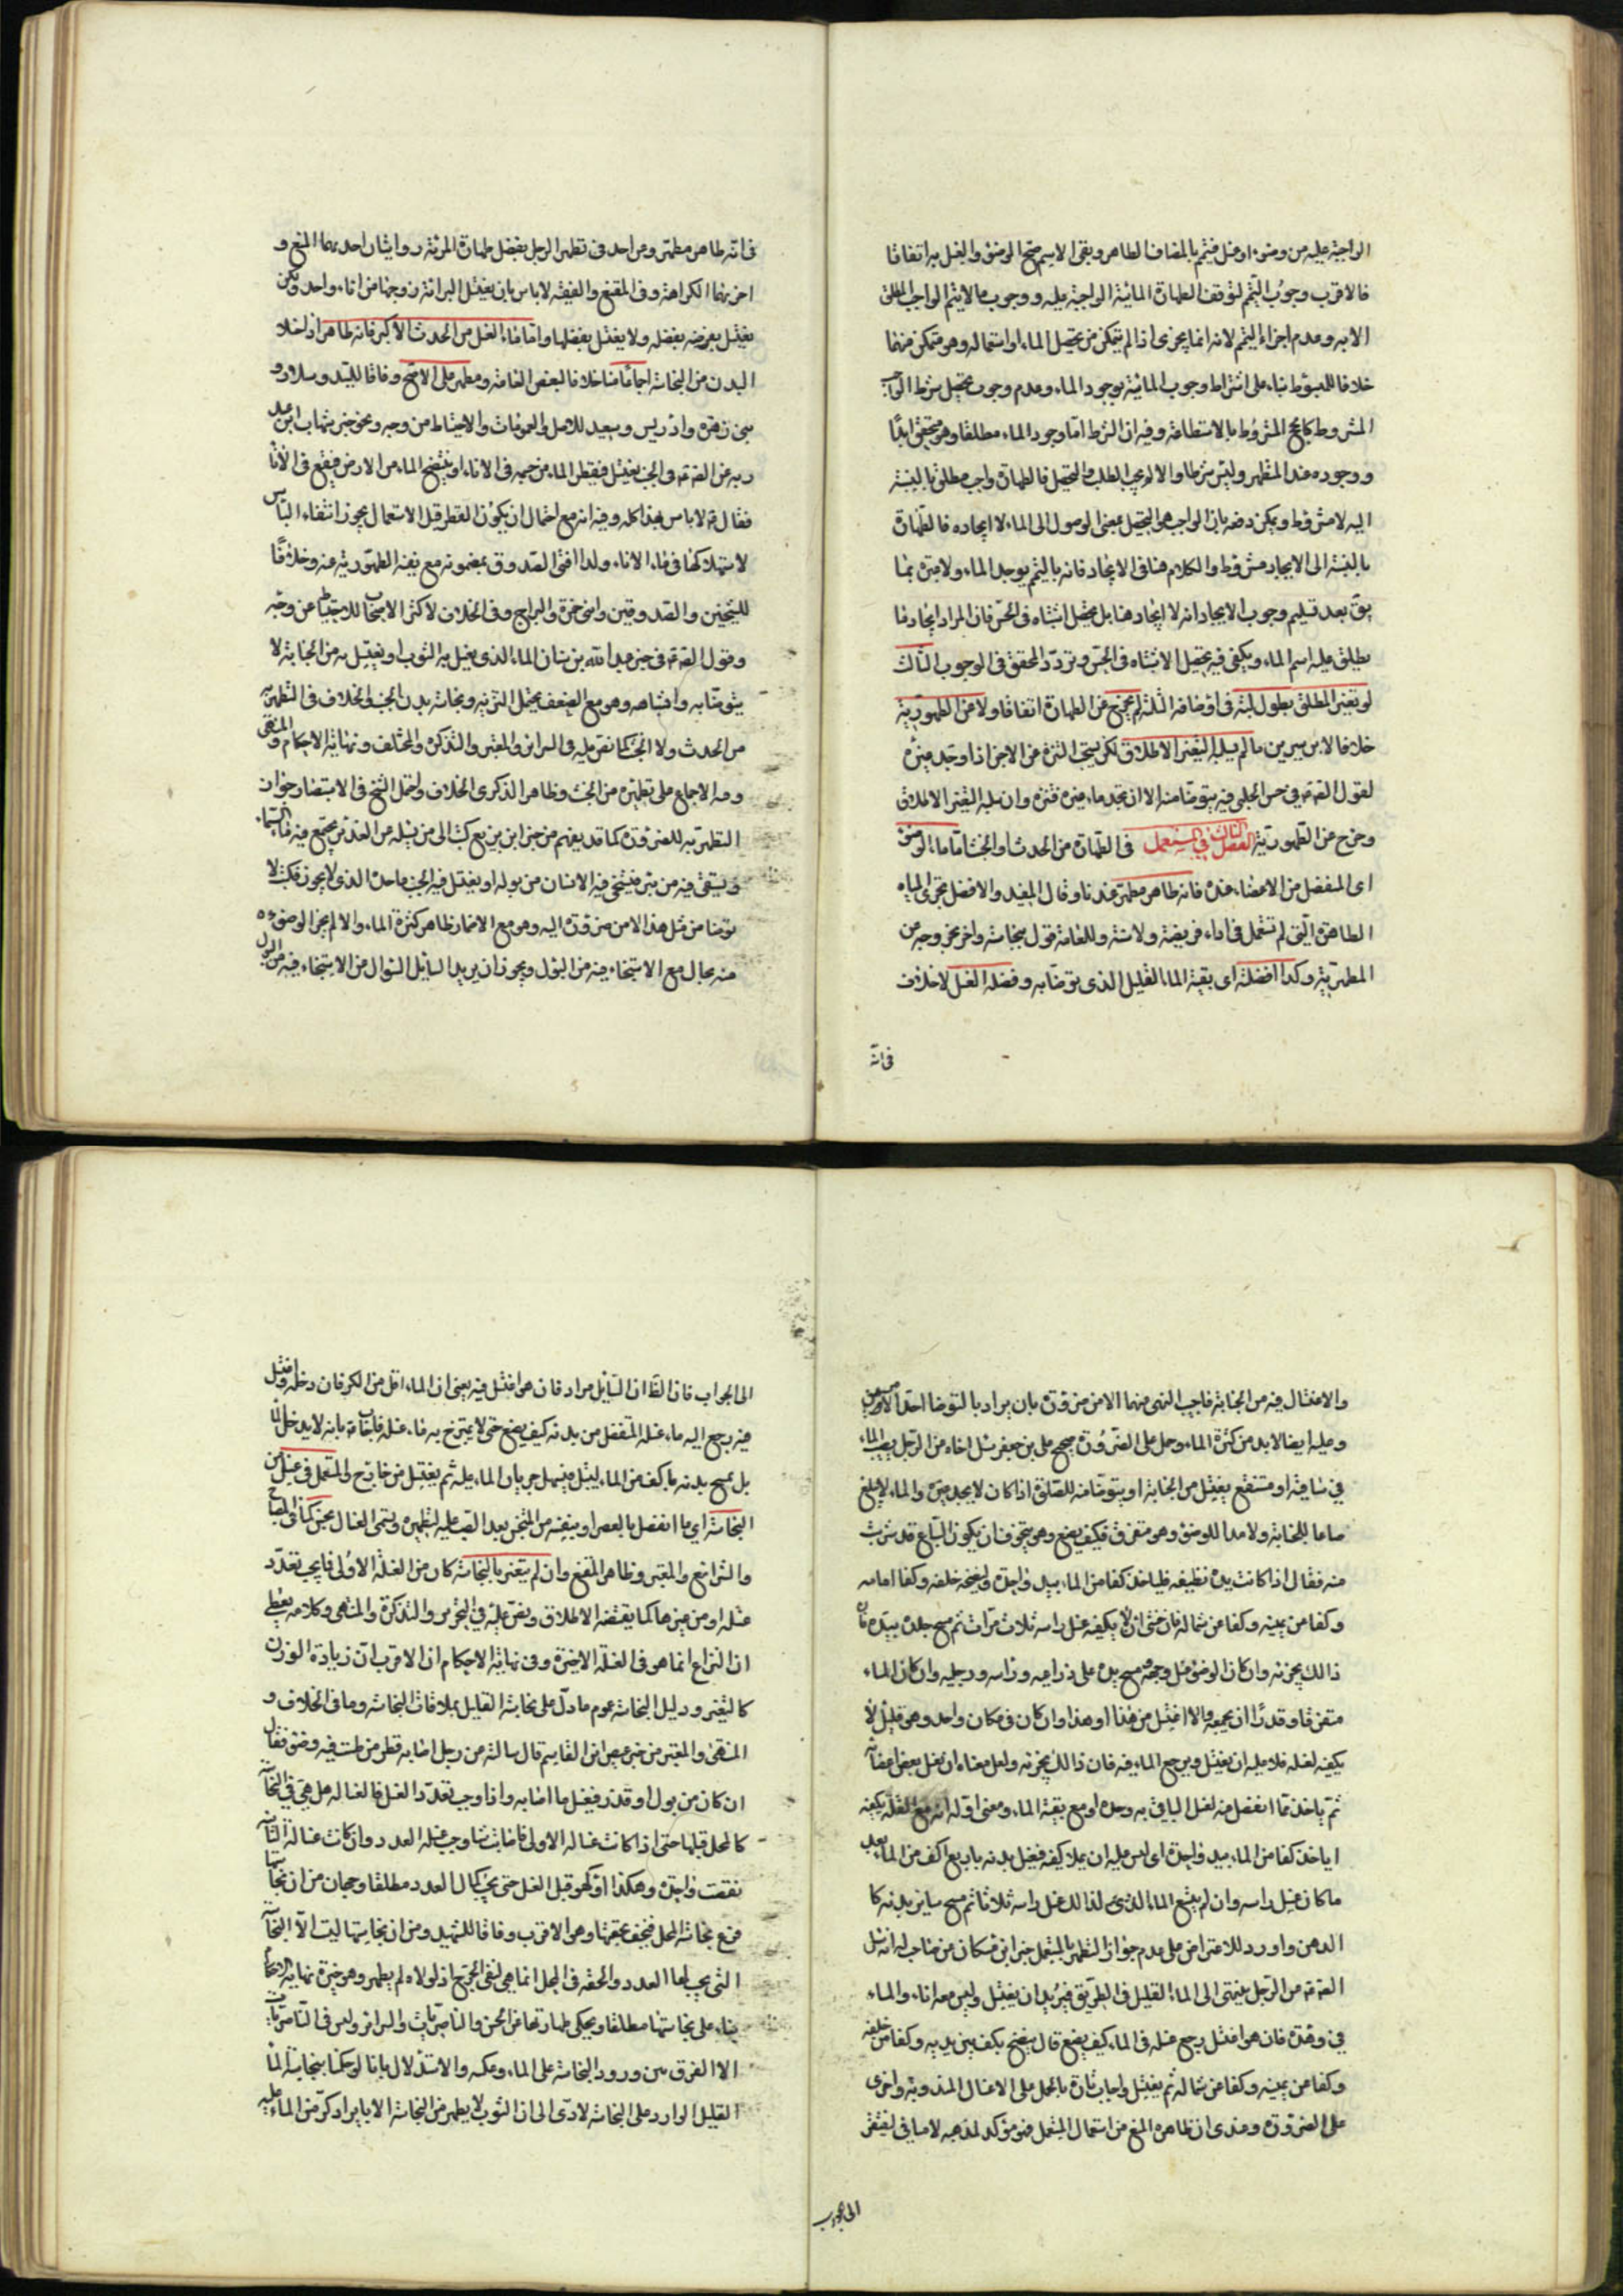 الواجبة عليه من وضوء او غسل فيتم بالمضاف الطاهر وبقى الاسم صح الوضوء والغسل به اتفاقا
فالاقرب وجوب التيمم لتوقف الطهارة المائية الواجبة عليه ووجوب ما لا يتم الواجب المطلق
الا به وعدم اجزاء التيمم لانه انما يجزى اذا لم يتمكن من تحصيل الماء او استعماله وهو متمكن منهما
خلافا للمبسوط بناء على اشتراط وجوب المائية بوجود الماء وعدم وجوب تحصيل شرط الواجب
المشروط كالحج المشروط بالاستطاعة وفيه ان الشرط اما وجود الماء مطلقا وهو متحقق ابدا
ووجوده عند المتطهر وليس شرطا والا لم يجب الطلب والتحصيل فالطهارة واجب مطلق بالنسبة
اليه لا مشروط ويمكن دفعه بان الواجب هو التحصيل بمعنى الوصول الى الماء لا ايجاده فالطهارة
بالنسبة الى الايجاد مشروط والكلام هنا فى الايجاد فانه بالتيمم يوجد الماء ولا عبرة بما
يق بعد تسليم وجوب الايجاد انه لا ايجاد هنا بل يحصل اشتباه فى الحس فان المراد ايجاد ما
يطلق عليه اسم الماء ويكفى فيه تحصيل الاشتباه فى الحس وتردد المحقق فى الوجوب الثالث
لو تغير المطلق بطول لبثه فى اوصافه الثلثة لم يخرج عن الطهارة اتفاقا ولا عن الطهورية
خلافا لابن سيرين ما لم يسلبه التغير الاطلاق لكن يستحب التنزه عن الاجن اذا وجد غيره
لقول الصادق ع فى حسن الحلبى فيه يتوضا منه الا ان تجد ماء غيره فتنزه وان سلبه التغير الاطلاق
وخرج عن الطهورية الفصل الثالث فى المستعمل فى الطهارة من الحدث او الخبث اما ماء الوضوء
اى المنفصل من الاعضاء عنده فانه طاهر مطهر عندنا وقال المفيد والافضل تحرى المياه
الطاهرة التى لم تستعمل فى اداء فريضة ولا سنة وللعامة قول بنجاسته واخر بخروجه عن
المطهرية وكذا افضلته اى بقية الماء القليل الذى توضا به وفضلة الغسل لا خلاف
فى انه
فى انه طاهر مطهر وعن احمد فى تطهر الرجل بفضل طهارة المرئة روايتان احديهما المنع و
اخريهما الكراهة وفى المقنع والفقيه لا باس بان يغتسل المرئة وزوجها من اناء واحد ولكن
يغتسل بفضله ولا يغتسل بفضلها واما ماء الغسل من الحدث الاكبر فانه طاهر اذا خلا
البدن من النجاسة اجماعا منا خلافا لبعض العامة ومطهر على الاصح وفاقا للسيد وسلار و
بنى زهرة وادريس وسعيد للاصل والعمومات والاحتياط من وجه ونحو خبر شهاب بن عبد
ربه عن الصادق ع فى الجنب يغتسل فيقطر الماء من جسده فى الاناء او ينتضح الماء من الارض فيقع فى الاناء
فقال ع لا باس بهذا كله وفيه انه مع احتمال ان يكون القطر قبل الاستعمال يجوز انتفاء الباس
لاستهلاكها فى ماء الاناء ولذا افتى الصدوق بمضمونه مع نفيه الطهورية عنه وخلافا
للشيخين والصدوقين وابنى حمزة والبراج وفى الخلاف لاكثر الاصحاب للاحتياط من وجه
وقول الصادق ع فى خبر عبد الله بن سنان الماء الذى يغسل به الثوب او يغتسل به من الجنابة لا
يتوضا به واشباهه وهو مع الضعف يحتمل التنزيه ونجاسة بدن الجنب والخلاف فى التطهر به
من الحدث ولا الخبث كما نص عليه فى السرائر والمعتبر والتذكرة والمختلف ونهاية الاحكام والمنتهى
وفيه الاجماع على تطهيره من الخبث وظاهر الذكرى الخلاف واحتمل الشيخ فى الاستبصار جواز
التطهر به للضرورة كما قد يفهم من خبر ابن بزيع كتب الى من يسئله عن الغدير يجتمع فيه ماء السماء
ويستقى فيه من بئر فيستنجى فيه الانسان من بوله او يغتسل فيه الجنب ما حده الذى لا يجوز فكتب لا
توضا من مثل هذا الا من ضرورة اليه وهو مع الاضمار ظاهر كثرة الماء والا لم يجز الوضوء
منه بحال مع الاستنجاء فيه من البول ويجوز ان يريد السائل السؤال من الاستنجاء فيه من البول
والاغتسال فيه من الجنابة فاجيب النهى عنهما الا من ضرورة بان يراد بالتوضا احد الامرين
وعليه ايضا لا بد من كثرة الماء وحمل على الضرورة صحيح على بن جعفر سئل اخاه عن الرجل يصيب الماء
فى ساقية او مستنقع يغتسل من الجنابة او يتوضا منه للصلوة اذا كان لا يجد غيره والماء لا يبلغ
صاعا للجنابة ولا مدا للوضوء وهو متفرق فكيف يصنع وهو يتخوف ان يكون السباع قد شربت
منه فقال اذا كانت يده نظيفة فلياخذ كفا من الماء بيد واحدة ولينضحه خلفه وكفا امامه
وكفا عن يمينه وكفا عن شماله فان خشى ان لا يكفيه غسل راسه ثلاث مرات ثم مسح جلده بيده فان
ذالك يجزيه وان كان الوضوء غسل وجهه ومسح يده على ذراعيه وراسه ورجليه وان كان الماء
متفرقا وقدر ان يجمعه والا اغتسل من هذا او هذا وان كان فى مكان واحد وهو قليل لا
يكفيه لغسله فلا عليه ان يغتسل ويرجع الماء فيه فان ذالك يجزيه ولعل معناه ان يغسل بعض اعضائه
ثم ياخذ مما انفصل منه لغسل الباقى به وحده او مع بقية الماء ومعنى اوله انه مع القلة يكفيه
اياخذ كفا من الماء بيد واحدة اى ليس عليه ان يملا كفيه فيغسل بدنه باربع اكف من الماء بعد
ما كان غسل راسه وان لم يتسع الماء الذى لذالك غسل راسه ثلاثا ثم مسح سائر بدنه كا
الدهن واورد للاعتراض على عدم جواز التطهر بالمستعمل خبر ابن مسكان عن صاحب له انه سئل
الصادق ع عن الرجل ينتهى الى الماء القليل فى الطريق فيريد ان يغتسل وليس معه اناء والماء
فى وهدة فان هو اغتسل رجع غسله فى الماء كيف يصنع قال ينضح بكف بين يديه وكفا من خلفه
وكفا عن يمينه وكفا عن شماله ثم يغتسل واجاب تارة بالحمل على الاغسال المندوبة واخرى
على الضرورة وعندى ان ظاهره المنع من استعمال المستعمل فهو مؤكد لمذهبه لا مناف ليفتقر
الى الجواب
الى الجواب فان الظ ان السائل مراد فان هو اغتسل فيه يعنى ان الماء اقل من الكر فان دخله واغتسل
فيه رجع اليه ماء غسله المنفصل من بدنه كيف يصنع حتى لا يمتزج به ماء غسله فاجاب ع بانه لا يدخل الماء
بل يمسح بدنه باكف من الماء ليبتل فيسهل جريان الماء عليه ثم يغتسل من خارج والمستعمل فى غسل من
النجاسة اى ما انفصل بالعصر او بنفسه من المتنجس بعد الصب عليه لتطهيره ويسمى الغسالة نجس كما فى الاصباح
والشرائع والمعتبر وظاهر المقنع وان لم يتغير بالنجاسة كان من الغسلة الاولى فيما يجب تعدد
غسله او من غيرها كما يقتضيه الاطلاق ونص عليه فى التحرير والتذكرة والمنتهى وكلامه يعطى
ان النزاع انما هو فى الغسلة الاخيرة وفى نهاية الاحكام ان الاقرب ان زيادة الوزن
كالتغير ودليل النجاسة عموم ما دل على نجاسة القليل بملاقات النجاسة وما فى الخلاف و
المنتهى والمعتبر من خبر عيص ابن القاسم قال سالته عن رجل اصابه قطر من طست فيه وضوء فقال
ان كان من بول او قذر فيغسل ما اصابه واذا وجب تعدد الغسل فالغسالة هل هى فى النجاسة
كالمحل قبلها حتى اذا كانت غسالة الاولى فاصابت شيئا وجب غسله العدد وان كانت غسالة الثانية
نقصت واحدة وهكذا او كهو قبل الغسل حتى يجب كمال العدد مطلقا وجهان من ان نجاستها
فرع نجاسة المحل فيخف بخفتها وهو الاقرب وفاقا للشهيد ومن ان نجاستها ليست الا النجاسة
التى يجب لها العدد والخفة فى المحل انما هى لنفى الحرج اذ لولاه لم يطهر وهو خيرة نهاية الاحكام
بناء على نجاستها مطلقا ويحكى طهارتها عن الحسن والناصريات والسرائر وليس فى الناصريات
الا الفرق بين ورود النجاسة على الماء وعكسه والاستدلال بانا لو حكمنا بنجاسة الماء
القليل الوارد على النجاسة لادى الى ان الثوب لا يطهر من النجاسة الا بايراد كر من الماء عليه